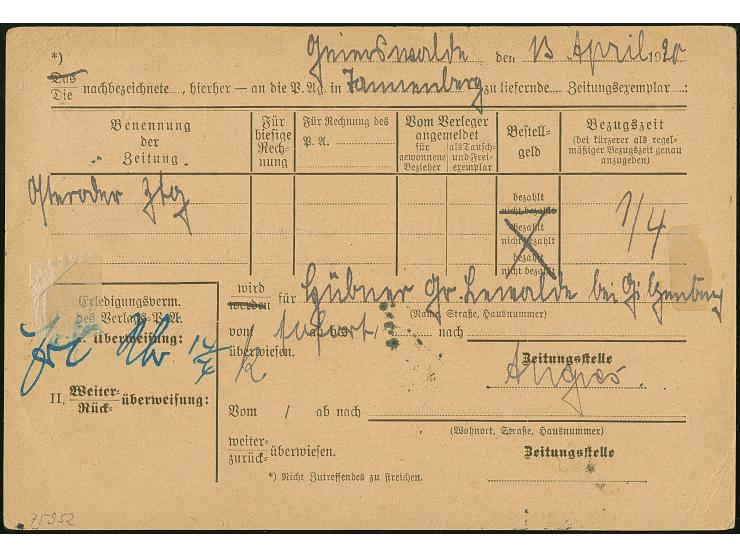 Geierswalde den 13 April 1920
*)
Das
Die nachbezeichnete...., hierher — an die P. Ag. in Tannenberg zu liefernde Zeitungsexemplar ....:
Benennung der Zeitung
Für hiesige Rechnung
Für Rechnung des P. A.
Vom Verleger angemeldet
für gewonnene Bezieher
als Tausch- und Freiexemplar
Bestellgeld
Bezugszeit
(bei kürzerer als regelmäßiger Bezugszeit genau anzugeben)
Osteroder Ztg
bezahlt
nicht bezahlt
bezahlt
nicht bezahlt
bezahlt
nicht bezahlt
1/4
Erledigungsverm.
des Verlags-P.A.
überweisung:
II. Weiter-
Rück- überweisung:
wird
werden für Hübner Gr. Lewalde bei Gilgenburg
(Name, Straße, Hausnummer)
vom sofort / nach
überwiesen.
Zeitungsstelle
Vom / ab nach
(Wohnort, Straße, Hausnummer)
weiter-
zurück- überwiesen.
Zeitungsstelle
*) Nicht Zutreffendes zu streichen.
75952